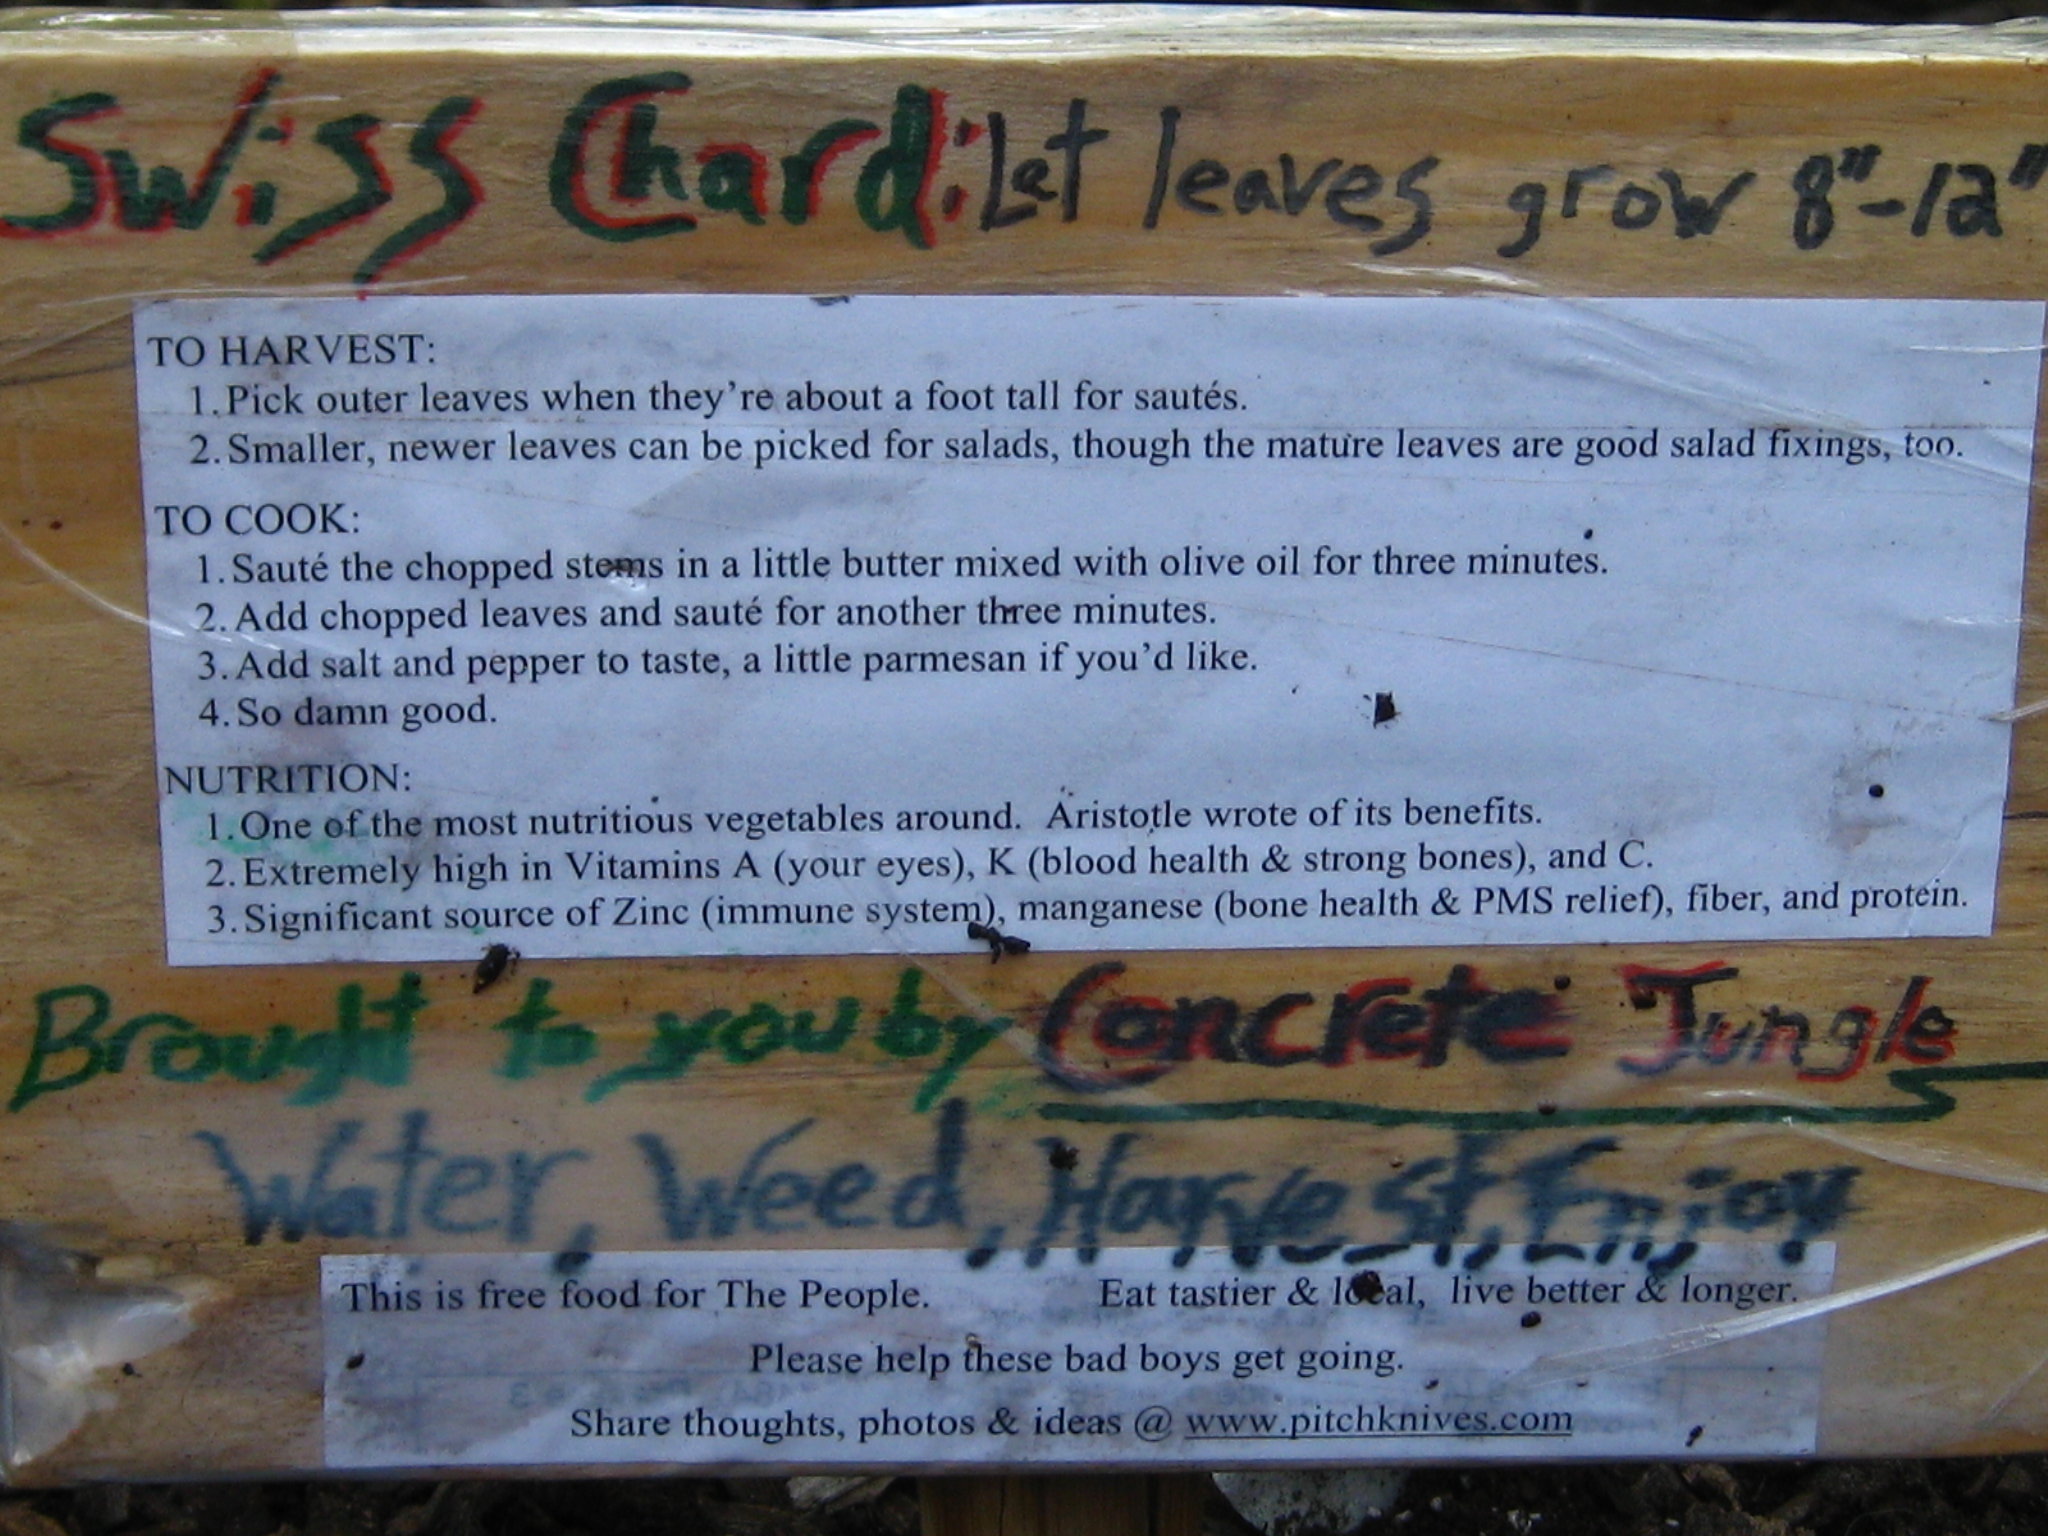 Swiss Chard: Let leaves grow 8"-12"
TO HARVEST:
1. Pick outer leaves when they're about a foot tall for sautés.
2. Smaller, newer leaves can be picked for salads, though the mature leaves are good salad fixings, too.
TO COOK:
1. Sauté the chopped stems in a little butter mixed with olive oil for three minutes.
2. Add chopped leaves and sauté for another three minutes.
3. Add salt and pepper to taste, a little parmesan if you'd like.
4. So damn good.
NUTRITION:
1. One of the most nutritious vegetables around. Aristotle wrote of its benefits.
2. Extremely high in Vitamins A (your eyes), K (blood health & strong bones), and C.
3. Significant source of Zinc (immune system), manganese (bone health & PMS relief), fiber, and protein.
Brought to you by Concrete Jungle
Water, Weed, Harvest, Enjoy
This is free food for The People. Eat tastier & local, live better & longer.
Please help these bad boys get going.
Share thoughts, photos & ideas @ www.pitchknives.com